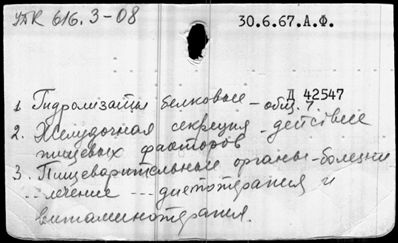 УДК 616.3-08
30.6.67.А.Ф.
Д 42547
1. Гидролизаты белковые - общ. ?.
2. Желудочная секреция - действие
пищевых факторов
3. Пищеварительные органы - болезни
.. лечение --- диетотерапия и
витаминотерапия.